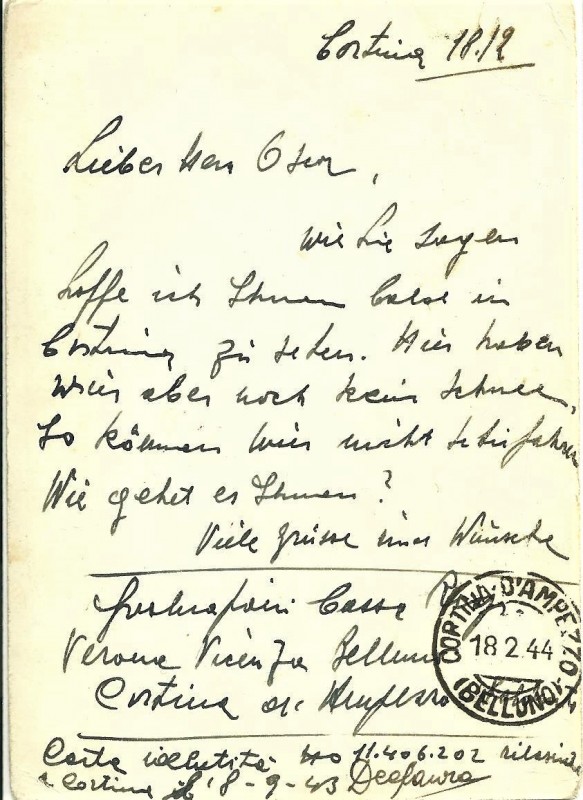 Cortina 18.12
Lieber Herr
wie Sie sagen
hoffe ich Ihnen bald in
Cortina zu sehen. Hier haben
wir aber noch kein Schnee,
so können wir nicht schifahren
Wie gehet es Ihnen?
Viele Grüsse und Wünsche
Cassa
Verona Vicenza Belluno
Cortina d'Ampezzo
CORTINA D'AMPEZZO
18 2 44
(BELLUNO)
Carta identità no 11.406.202 rilasciata
a Cortina il 18-9-43